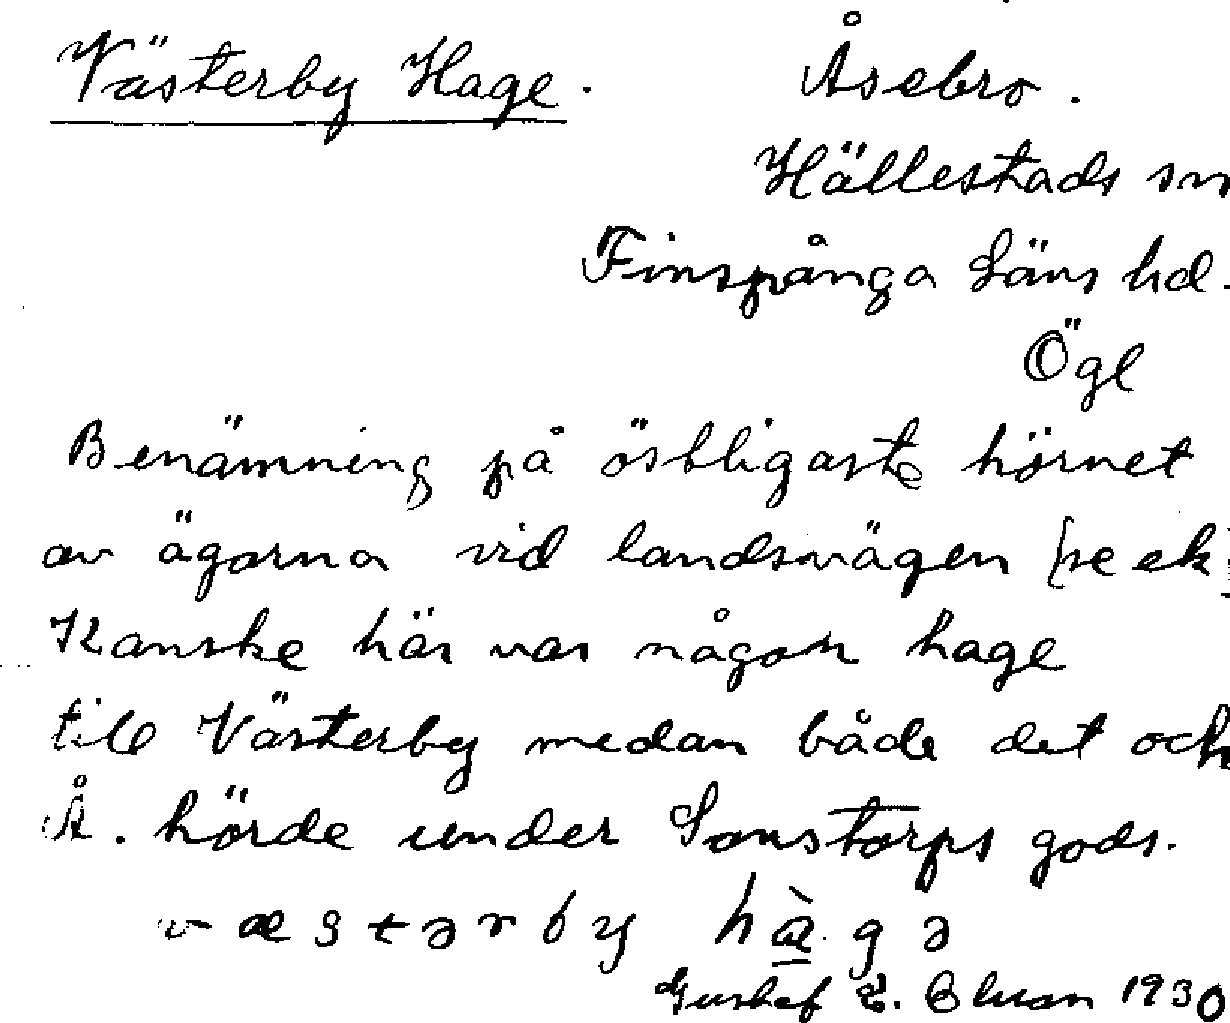 Västerby Hage. Åsebro.
Hällestads sn
Finspånga Läns hd.
Ögl
Benämning på östligaste hörnet
av ägorna vid landsvägen (se ek.
Kanske här var någon hage
till Västerby medan både det och
Å. hörde under Sonstorps gods.
væstərby hàgə
Gustaf E. 1930